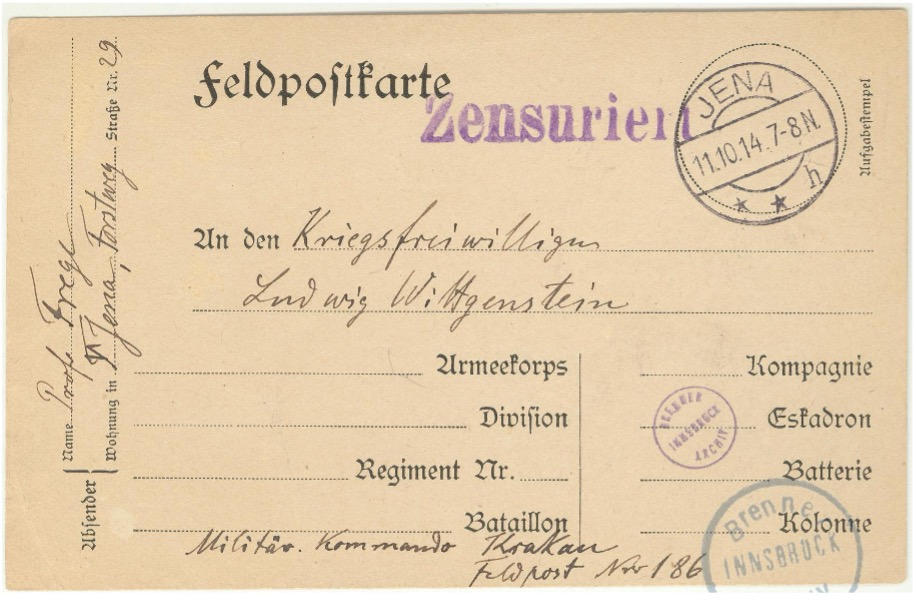 Feldpostkarte
Zensuriert
JENA
11.10.14. 7-8 N.
h
Aufgabestempel
An den Kriegsfreiwilligen
Ludwig Wittgenstein
Armeekorps
Division
Regiment Nr.
Bataillon
Kompagnie
Eskadron
Batterie
Kolonne
Militär. Kommando Krakau
Feldpost Nro 186
Absender
Name Prof. Frege
Wohnung in Jena, Forstweg Straße Nr. 29
BRENNER
INNSBRUCK
ARCHIV
Brenner
INNSBRUCK